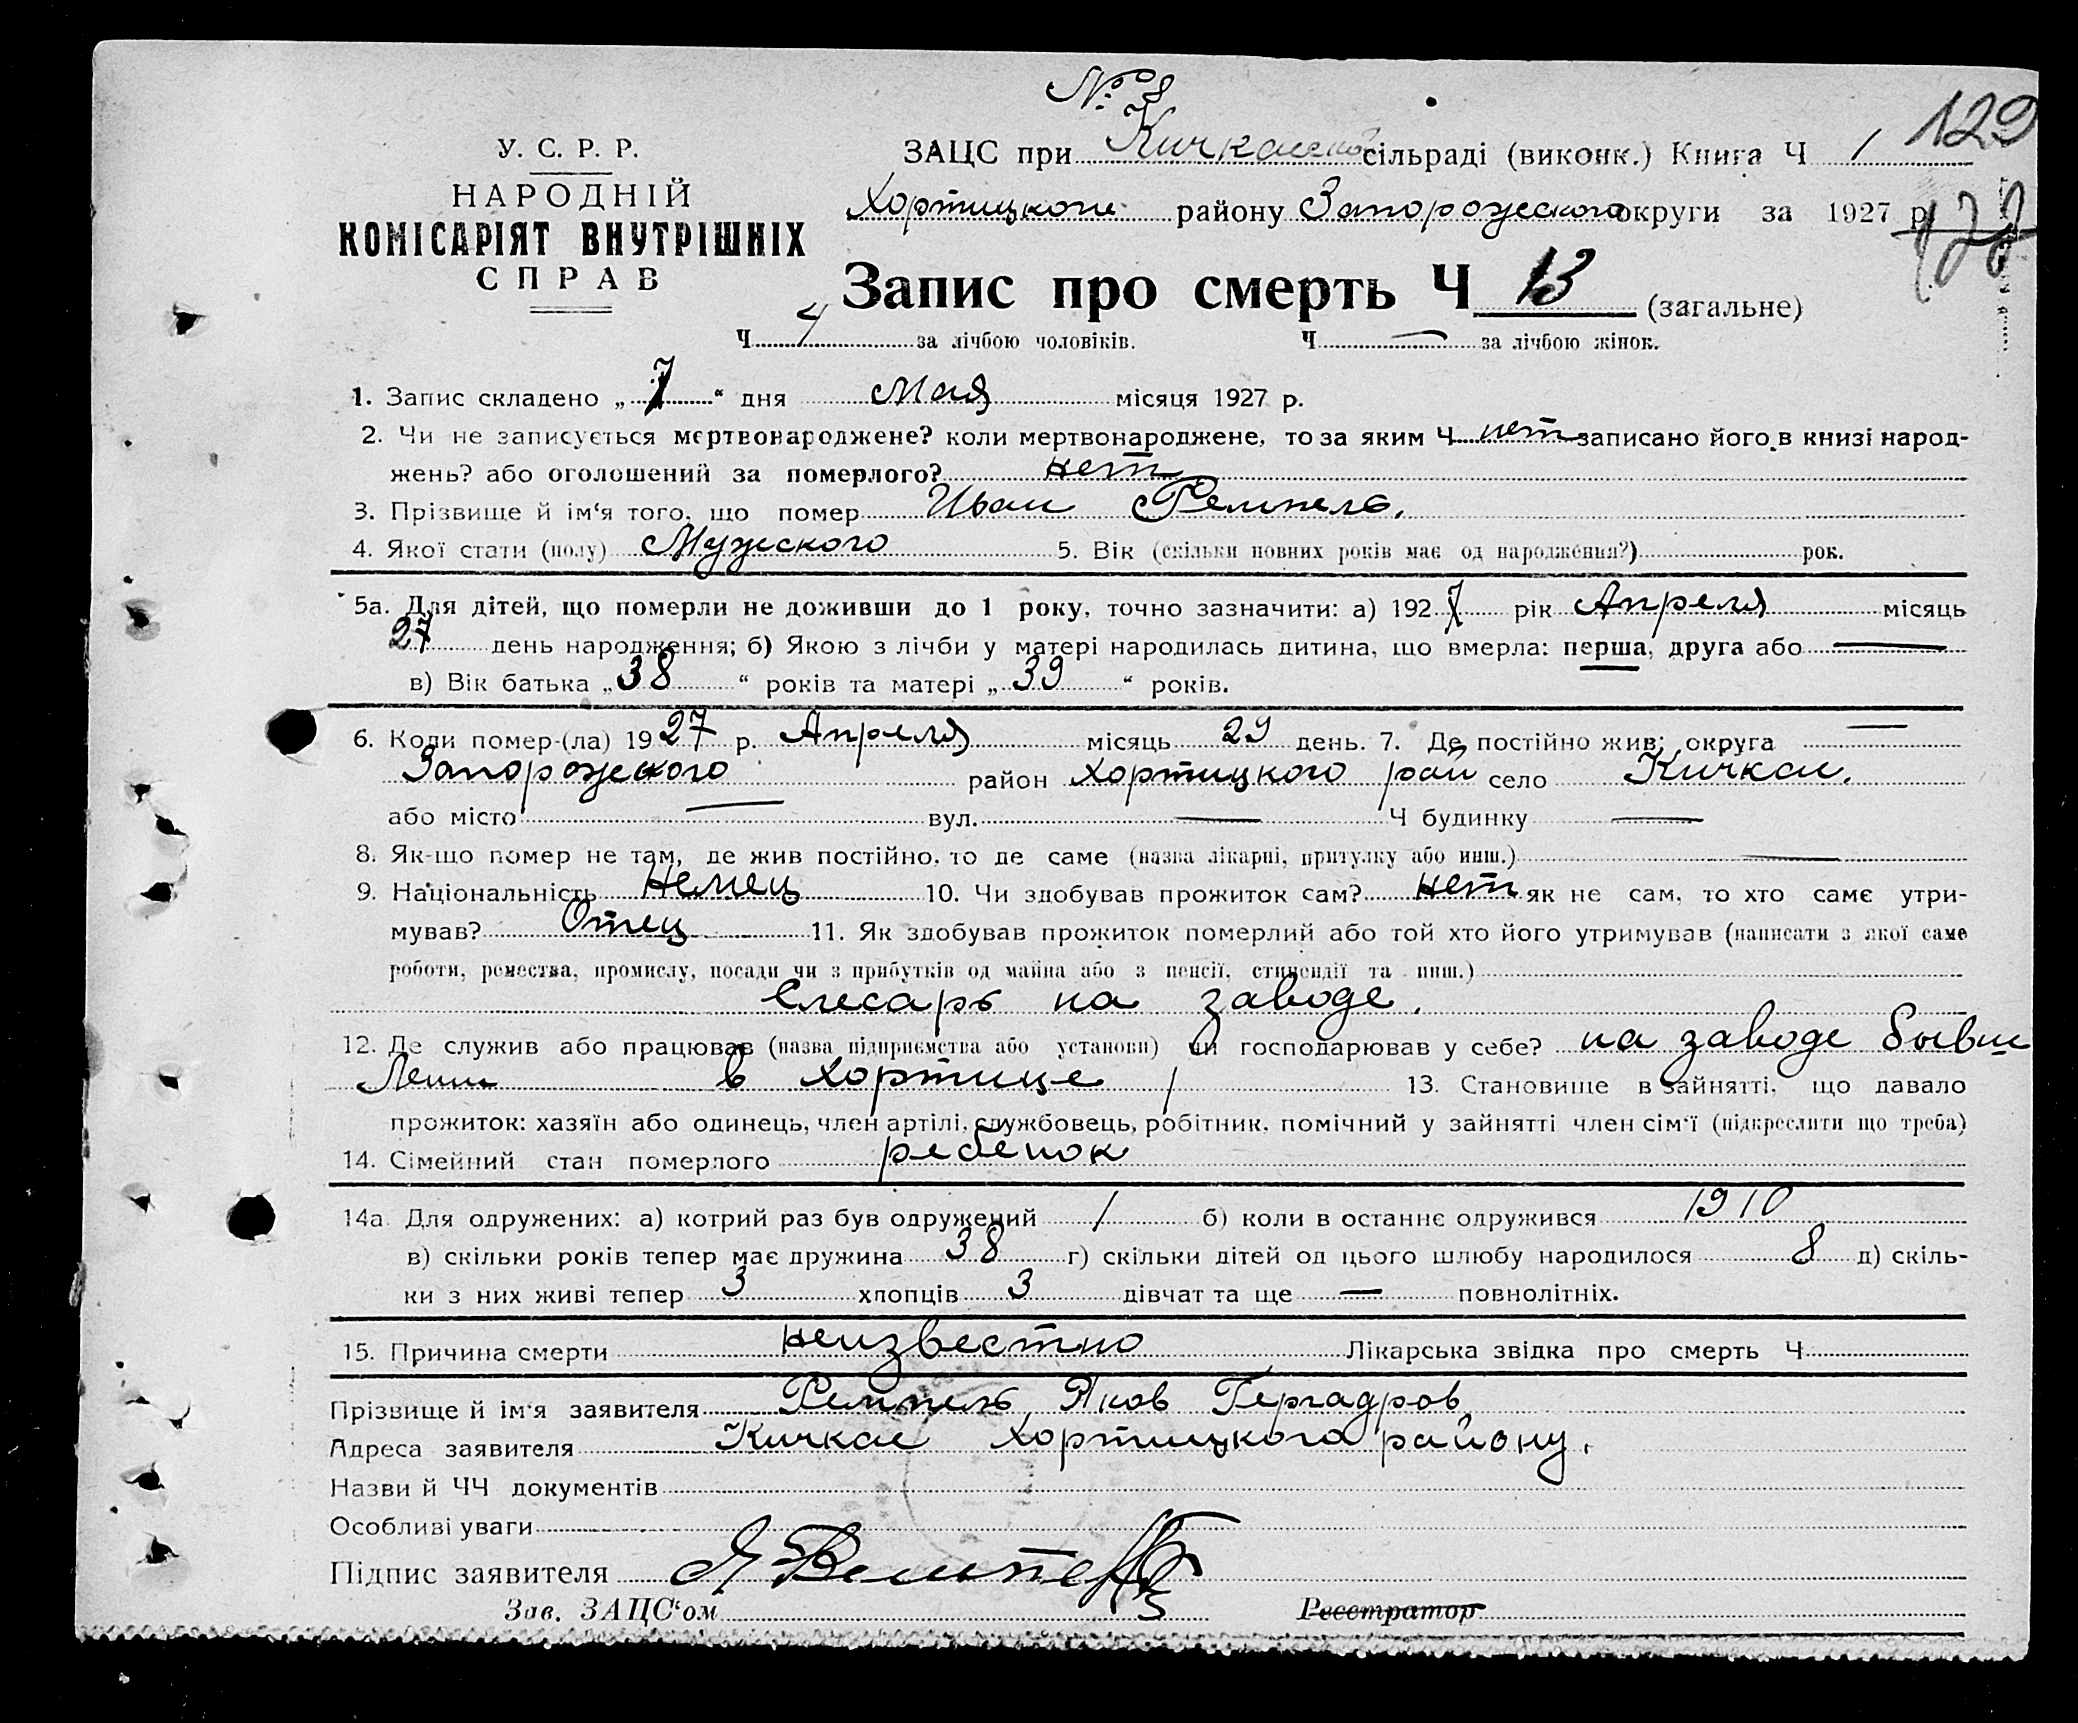 № 8
129
У. С. Р. Р.
НАРОДНІЙ
КОМІСАРІЯТ ВНУТРІШНІХ
СПРАВ
ЗАЦС при Кичкаской сільраді (виконк.) Книга Ч 1
Хортицкого району Запорожского округи за 1927 р.
Запис про смерть Ч 13 (загальне)
Ч 4 за лічбою чоловіків. Ч — за лічбою жінок.
1. Запис складено „ 7 “ дня Мая місяця 1927 р.
2. Чи не записується мертвонароджене? коли мертвонароджене, то за яким Ч нет записано його в книзі народ-
жень? або оголошений за померлого? нет
3. Прізвище й ім‘я того, що помер Иван Ремпель.
4. Якої стати (полу) Мужского 5. Вік (скільки повних років має од народження?) рок.
5а. Для дітей, що померли не доживши до 1 року, точно зазначити: а) 1927 рік Апреля місяць
27 день народження; б) Якою з лічби у матері народилась дитина, що вмерла: перша, друга або —
в) Вік батька „ 38 “ років та матері „ 39 “ років.
6. Коли помер-(ла) 1927 р. Апреля місяць 29 день. 7. Де постійно жив: округа —
Запорожского район Хортицкого рай село Кичкас.
або місто — вул. — Ч будинку —
8. Як-що помер не там, де жив постійно, то де саме (назва лікарні, притулку або инш.) —
9. Національність Немец 10. Чи здобував прожиток сам? нет як не сам, то хто самє утри-
мував? Отец 11. Як здобував прожиток померлий або той хто його утримував (написати з якої саме
роботи, ремества, промислу, посади чи з прибутків од майна або з пенсії, стипендії та инш.)
Слесарь на заводе.
12. Де служив або працював (назва підприємства або установи) чи господарював у себе? на заводе бывш
в Хортице 13. Становище в зайнятті, що давало
прожиток: хазяїн або одинець, член артілі, службовець, робітник, помічний у зайнятті член сім‘ї (підкреслити що треба)
14. Сімейний стан померлого ребенок
14а. Для одружених: а) котрий раз був одружений 1 б) коли в останнє одружився 1910
в) скільки років тепер має дружина 38 г) скільки дітей од цього шлюбу народилося 8 д) скіль-
ки з них живі тепер 3 хлопців 3 дівчат та ще — повнолітніх.
15. Причина смерти неизвестно Лікарська звідка про смерть Ч
Прізвище й ім‘я заявителя Ремпель Яков Гергадров
Адреса заявителя Кичкас Хортицкого району.
Назви й ЧЧ документів
Особливі уваги
Підпис заявителя
Зав. ЗАЦС‘ом Реєстратор